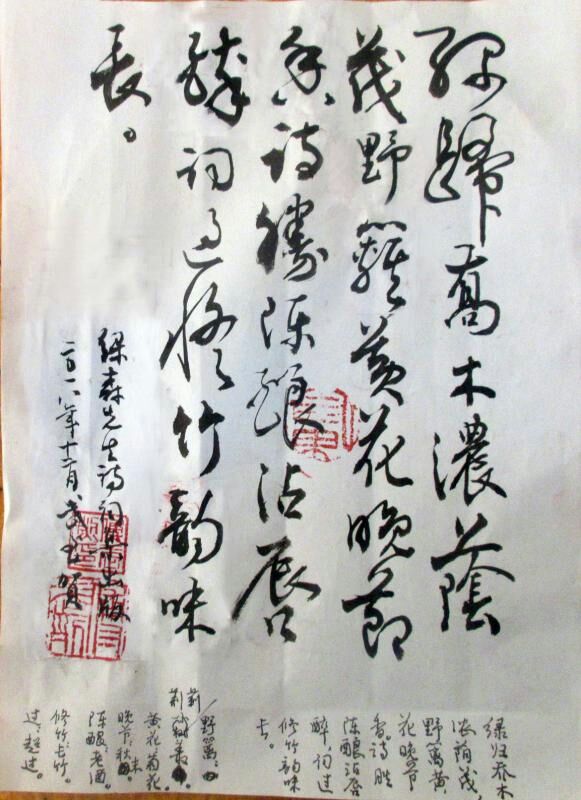 綠歸喬木濃蔭
茂野籬黄花晚節
香诗勝陈釀沾唇
醉词过修竹韵味
長。
绿森先生诗词集出版
二〇一八年十二月 贺
绿归乔木
浓荫茂，
野篱黄
花晚节
香。诗胜
陈酿沾唇
醉，词过
修竹韵味
长。
野篱：
黄花菊花。
晚节：秋末
陈酿：老酒。
修竹：长竹。
过：超过。